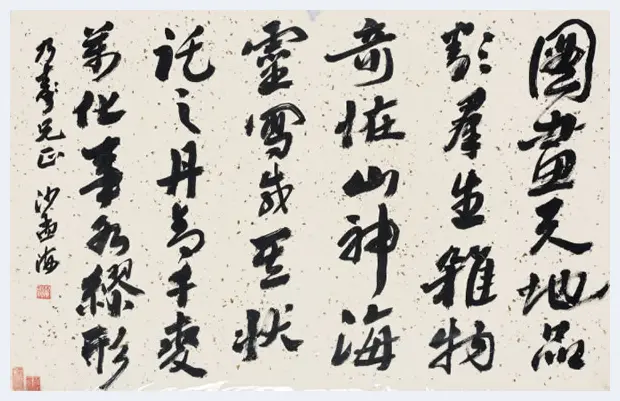 圖畫天地品
類羣生雜物
奇恠山神海
靈寫載其狀
託之丹青千變
萬化事各繆形
乃壽兄正 沙孟海